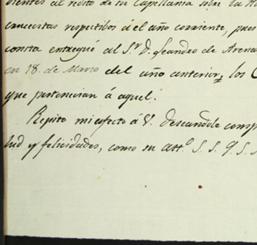 dientes al redito de su Capellania sobre la
respectibos á el año corriente, pues
consta entregué al S.r D. Leandro de
en 18. de Marzo del año anterior, los
que pertenecian á aquel.
Repito mi afecto á V. deseandole
lud y felicidades, como su att.o S. S. Q. S.